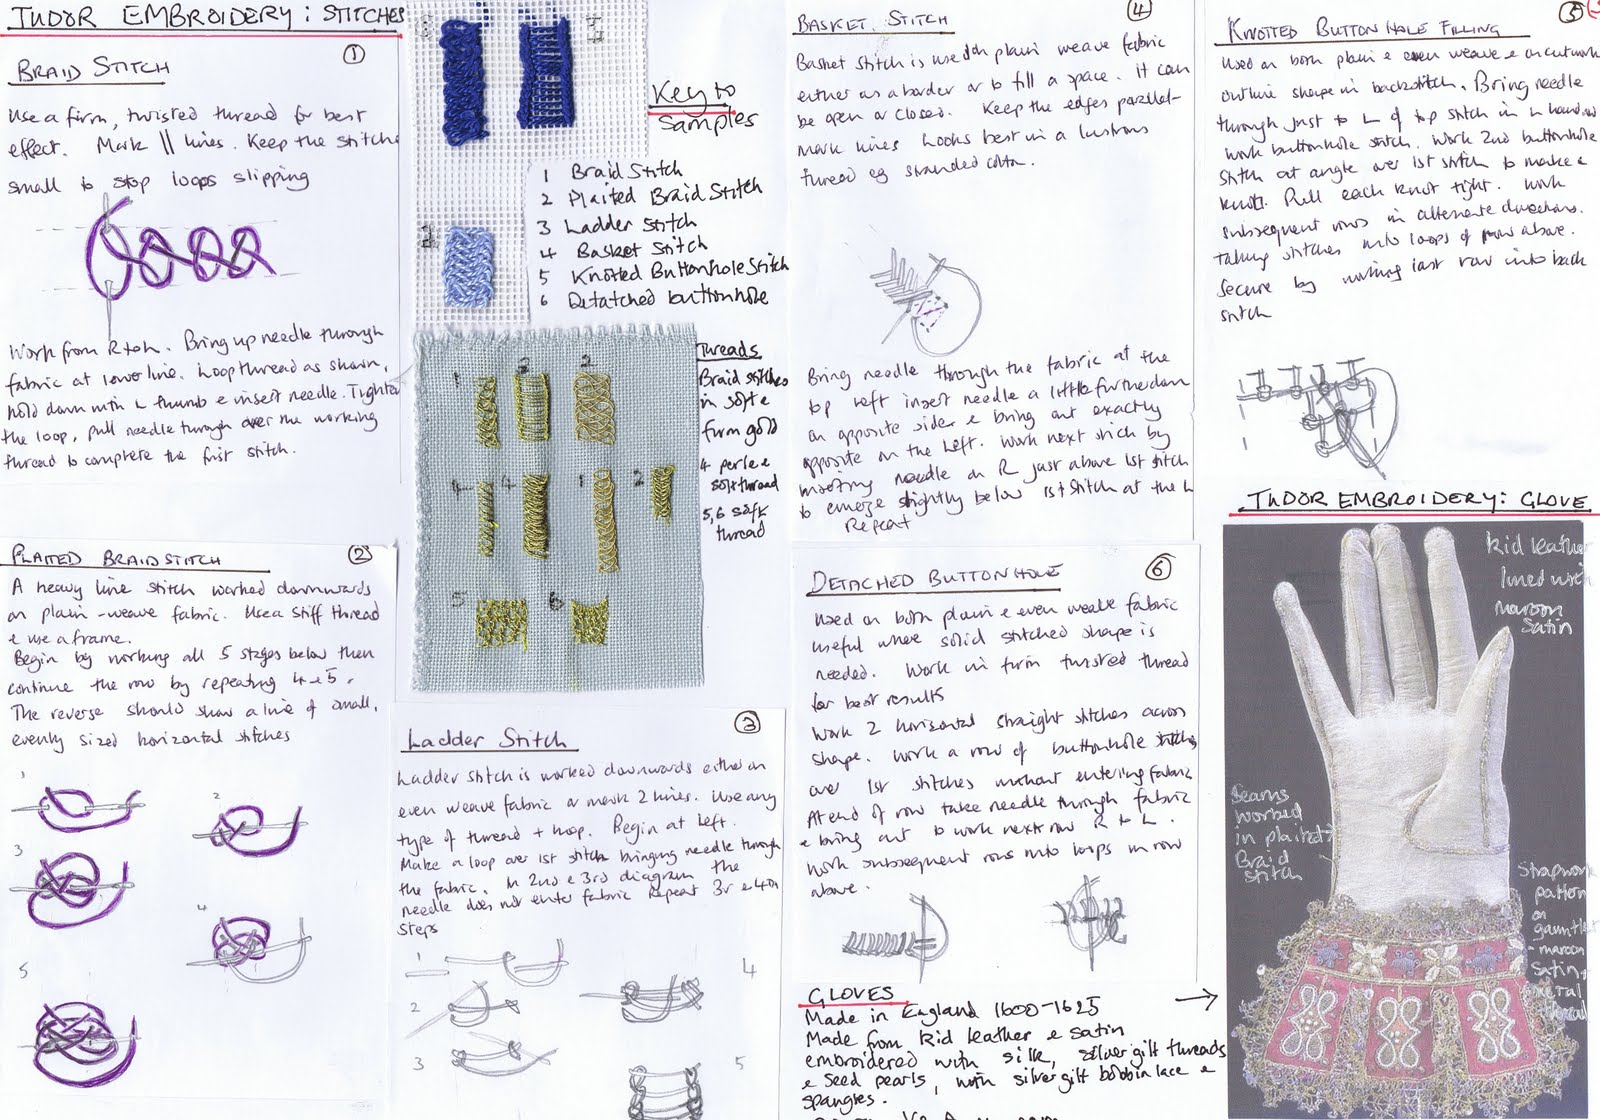 TUDOR EMBROIDERY: STITCHES
①
BRAID STITCH
Use a firm, twisted thread for best
effect. Mark || lines. Keep the stitches
small to stop loops slipping
Work from R to L. Bring up needle through
fabric at lower line. Loop thread as shown,
hold down with L thumb & insert needle. Tighten
the loop, pull needle through over the working
thread to complete the first stitch.
PLAITED BRAID STITCH ②
A heavy line stitch worked downwards
on plain-weave fabric. Use a stiff thread
& use a frame.
Begin by working all 5 stages below then
continue the row by repeating 4 & 5.
The reverse should show a line of small,
evenly sized horizontal stitches
1
2
3
4
5
Key to
Samples
1 Braid Stitch
2 Plaited Braid Stitch
3 Ladder Stitch
4 Basket Stitch
5 Knotted Buttonhole Stitch
6 Detatched buttonhole
2
1 3 2
4 4 1 2
5 6
Threads
Braid stitches
in soft &
firm gold
4 perle &
soft thread
5,6 soft
thread
③
Ladder Stitch
Ladder stitch is worked downwards either on
even weave fabric or mark 2 lines. Use any
type of thread + hoop. Begin at left.
Make a loop over 1st stitch bringing needle through
the fabric. In 2nd & 3rd diagram the
needle does not enter fabric Repeat 3r & 4th
steps
1
2
3
4
5
④
BASKET STITCH
Basket stitch is used on plain weave fabric
either as a border or to fill a space. it can
be open or closed. Keep the edges parallel -
mark lines Looks best in a lustrous
thread eg stranded cotton.
Bring needle through the fabric at the
top left insert needle a little further down
on opposite side & bring out exactly
opposite on the left. Work next stich by
inserting needle on R just above 1st stitch
to emerge slightly below 1st stitch at the L
Repeat
⑥
DETACHED BUTTONHOLE
Used on both plain & even weave fabric
useful where solid stitched shape is
needed. Work in firm twisted thread
for best results
Work 2 horizontal straight stitches across
shape. Work a row of buttonhole stitches
over 1st stitches without entering fabric
At end of row take needle through fabric
& bring out to work next row R to L.
Work subsequent rows into loops in row
above.
GLOVES
Made in England 1600-1625
Made from kid leather & satin
embroidered with silk, silver gilt threads
& seed pearls, with silver gilt bobbin lace &
spangles.
⑤
KNOTTED BUTTON HOLE FILLING
Used on both plain & even weave & on cutwork
outline shape in backstitch. Bring needle
through just to L of top stitch in L hand
work buttonhole stitch. Work 2nd buttonhole
stitch at angle over 1st stitch to make a
knot. Pull each knot tight. Work
subsequent rows in alternate directions.
taking stitches into loops of row above.
Secure by working last row into back
stitch
TUDOR EMBROIDERY: GLOVE
kid leather
lined with
maroon
Satin
Seams
worked
in plaited
Braid
stitch
Strapwork
pattern
on
gauntlet
- maroon
Satin,
metal
thread